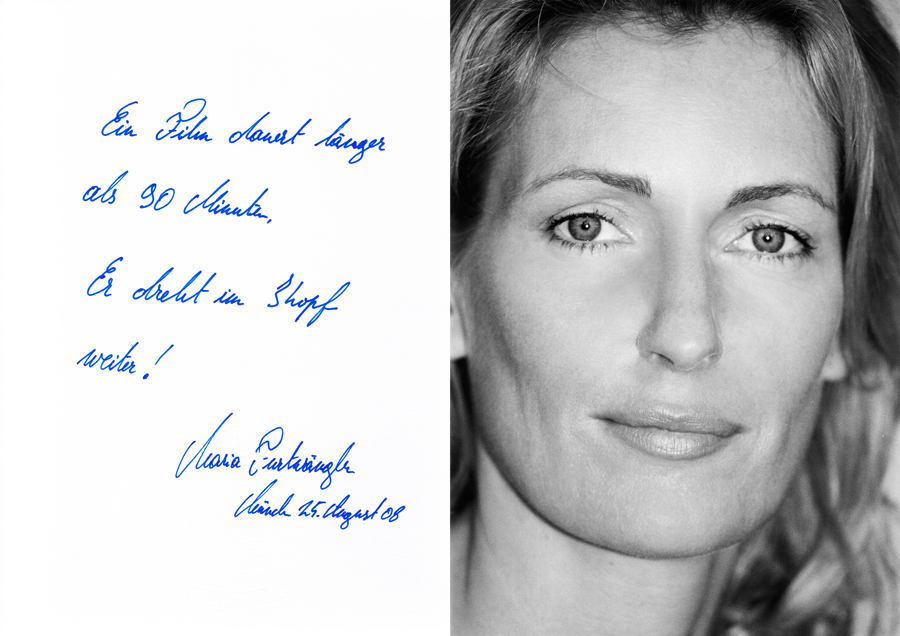 Ein Film dauert länger
als 90 Minuten,
Er dreht im Kopf
weiter!
Maria Furtwängler
München 25. August 08